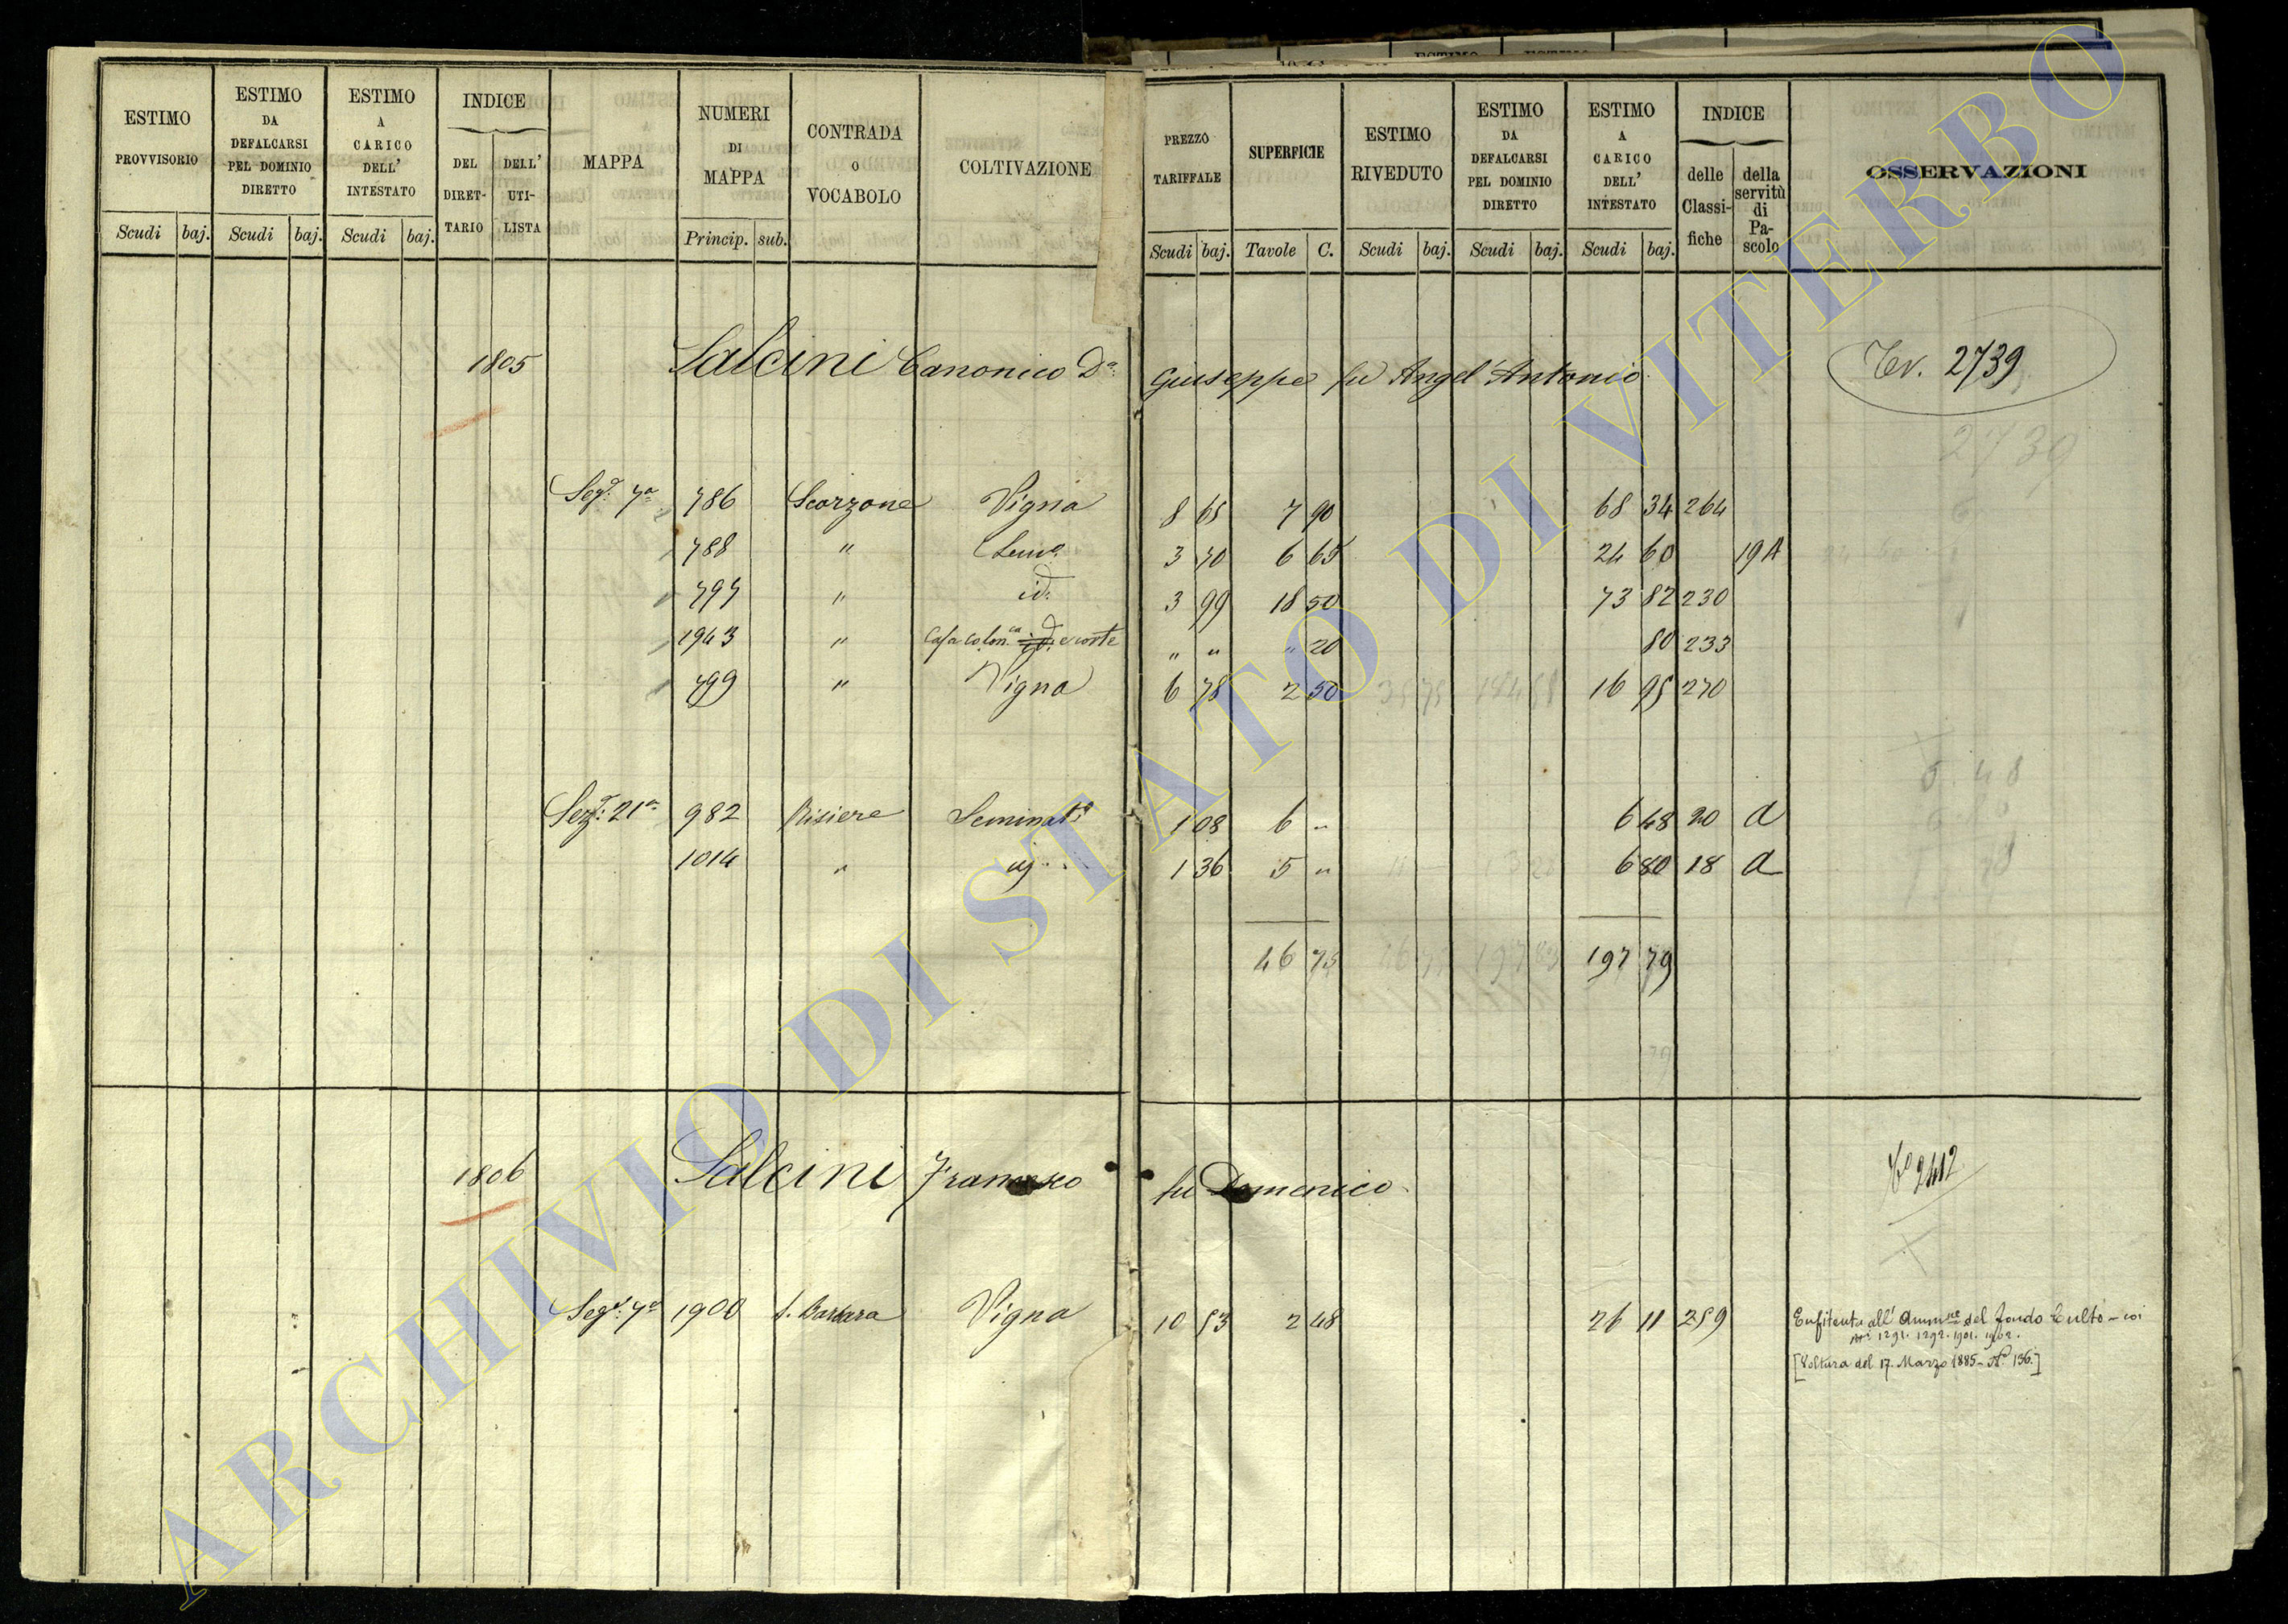 ESTIMO PROVVISORIO
ESTIMO DA DEFALCARSI PEL DOMINIO DIRETTO
ESTIMO A CARICO DELL' INTESTATO
INDICE
DEL DIRET-TARIO
DELL' UTI-LISTA
MAPPA
NUMERI DI MAPPA
CONTRADA O VOCABOLO
COLTIVAZIONE
PREZZO TARIFFALE
SUPERFICIE
ESTIMO RIVEDUTO
ESTIMO DA DEFALCARSI PEL DOMINIO DIRETTO
ESTIMO A CARICO DELL' INTESTATO
INDICE
delle Classi-fiche
della servitù di Pa-scolo
OSSERVAZIONI
Scudi baj. Scudi baj. Scudi baj. Princip. sub. Scudi baj. Tavole C. Scudi baj. Scudi baj. Scudi baj.
1805 Salcini Canonico Dn. Giuseppe fu Angel'Antonio Tev. 2739
2739
Sez. 7a 786 Scorzone Vigna 8 65 7 90 68 34 264
788 " Semo. 3 70 6 65 24 60 19 A
797 " id. 3 99 18 50 73 82 230
1943 " Casa colonca e corte " " " 20 80 233
799 " Vigna 6 78 2 50 16 95 270
Sez. 21a 982 Risiere Seminato 1 08 6 " 6 48 20 A
1014 " id. 1 36 5 " 6 80 18 A
46 75 197 79
1806 Salcini Francesco fu Domenico 2412
Sez. 7a 1900 S. Barbara Vigna 10 53 2 48 26 11 259 Enfiteuta all'Ammne del fondo Culto - coi
Ni 1291. 1292. 1901. 1902.
[Voltura del 17. Marzo 1885 - No. 136.]
ARCHIVIO DI STATO DI VITERBO